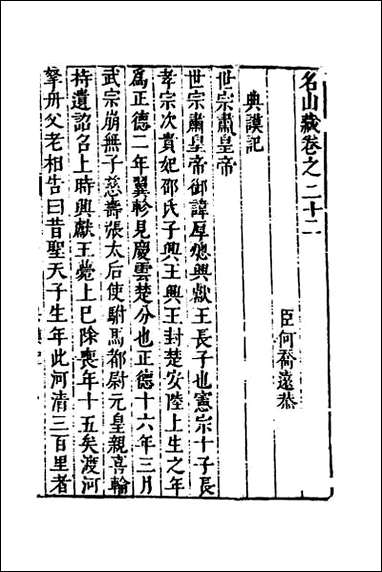 名山藏卷之二十二
臣何喬遠恭
典謨記
世宗肅皇帝
世宗肅皇帝御諱厚熜興獻王長子也憲宗十子長
孝宗次貴妃邵氏子興王興王封楚安陸上生之年
爲正德二年翼軫見慶雲楚分也正德十六年三月
武宗崩無子慈壽張太后使駙馬都尉元皇親喜輪
持遺詔名上時興獻王薨上巳除喪年十五矣渡河
擎舟父老相告曰昔聖天子生年此河清三百里者